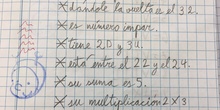 * dandole la vuelta es el 32.
* es número impar.
* tiene 2D y 3U.
* está entre el 22 y el 24.
* su suma es 5.
* su multiplicación 2x3